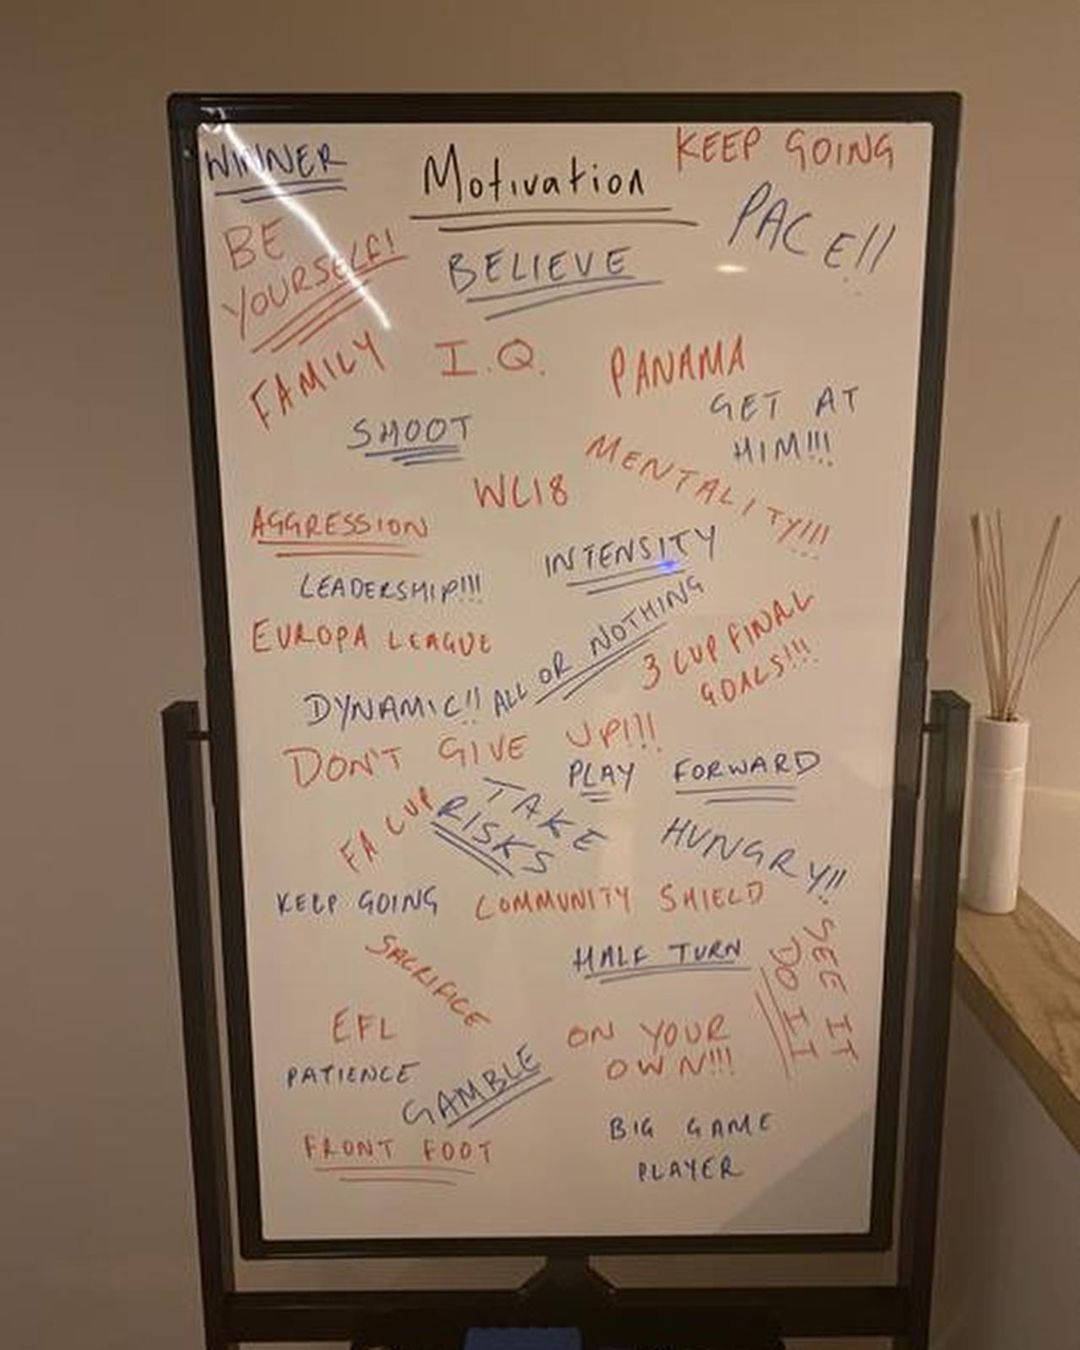 WINNER
Motivation
KEEP GOING
PACE!!
BE
YOURSELF!
BELIEVE
FAMILY
I.Q.
PANAMA
GET AT
HIM!!!
SHOOT
MENTALITY!!!
WC18
AGGRESSION
INTENSITY
LEADERSHIP!!!
EUROPA LEAGUE
ALL OR NOTHING
3 CUP FINAL
GOALS!!!
DYNAMIC!!
DON'T GIVE UP!!!
PLAY FORWARD
FA CUP
TAKE
RISKS
HUNGRY!!
KEEP GOING
COMMUNITY SHIELD
SACRIFICE
HALF TURN
SEE IT
DO IT
EFL
ON YOUR
OWN!!!
PATIENCE
GAMBLE
FRONT FOOT
BIG GAME
PLAYER